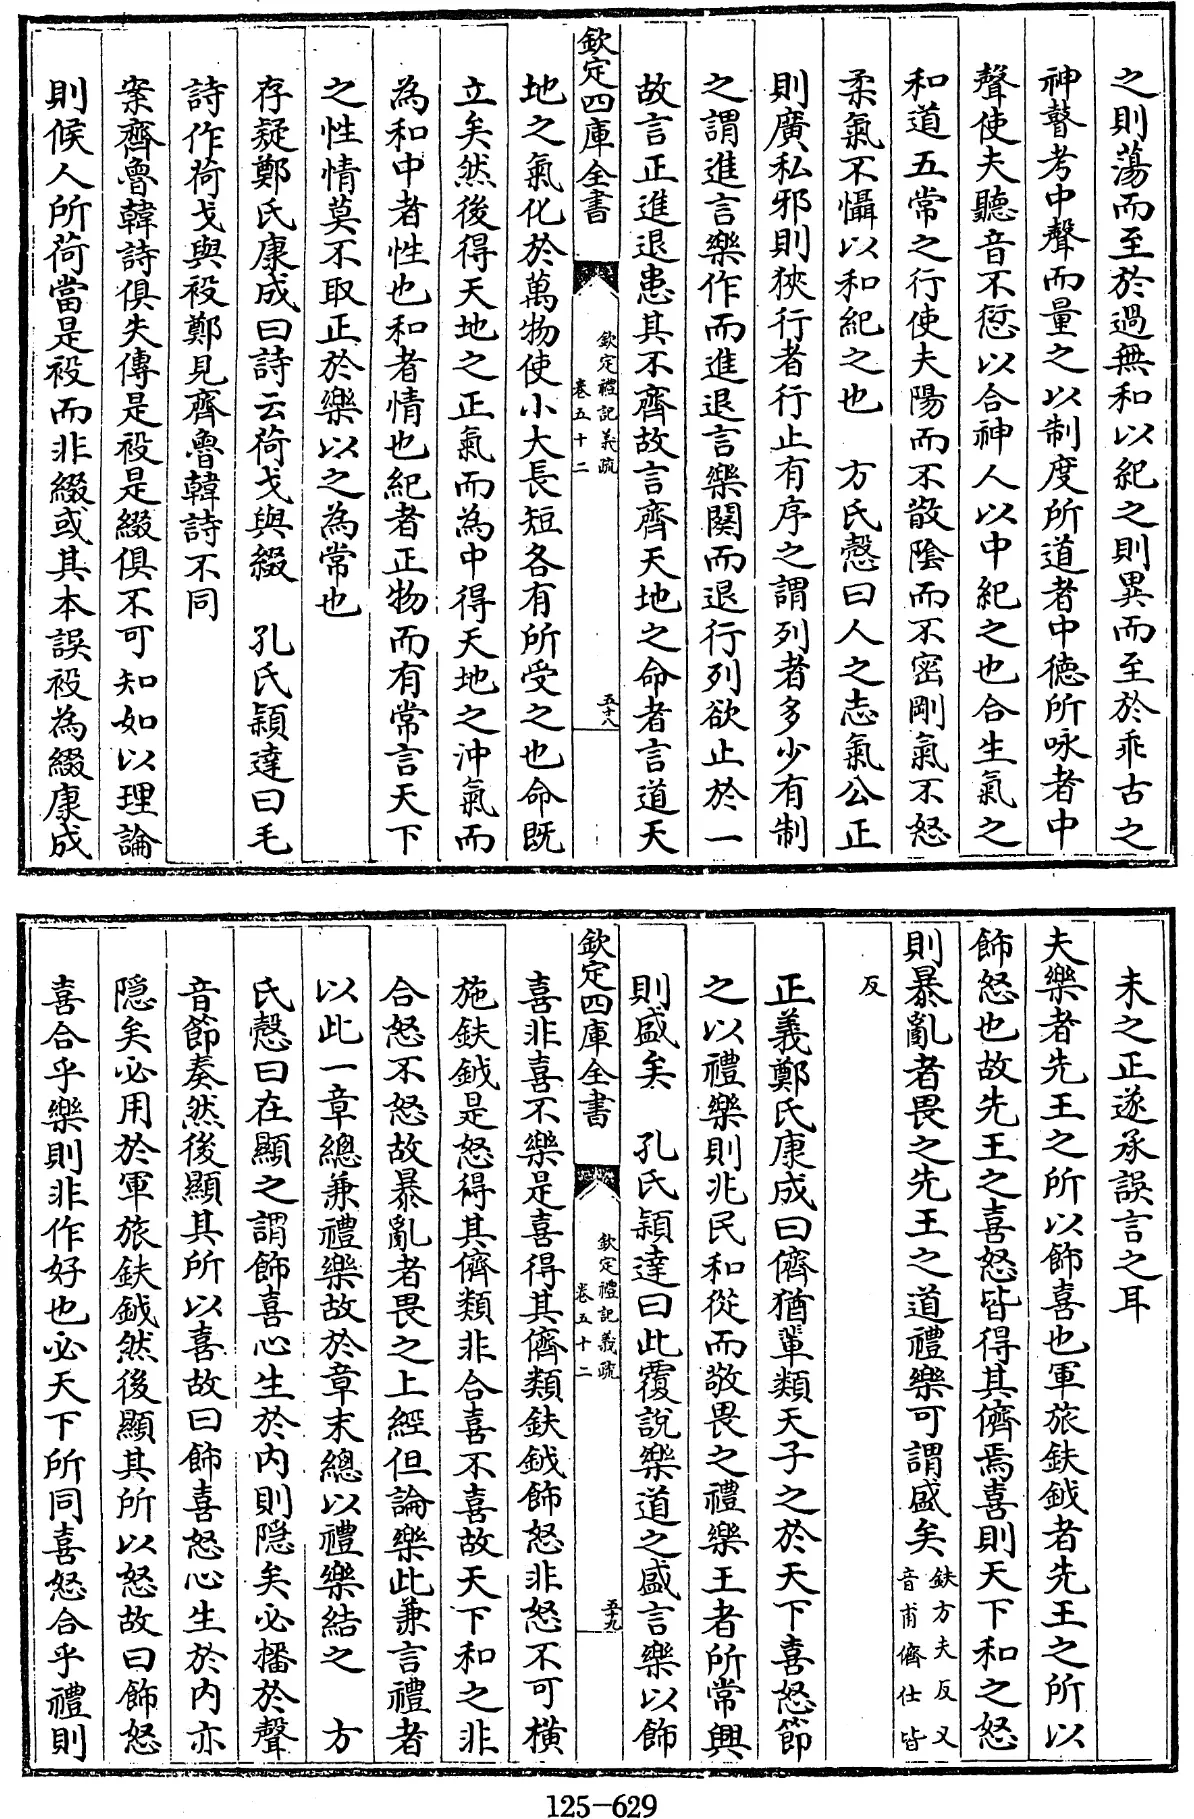 之則蕩而至於過無和以紀之則異而至於乖古之
神瞽考中聲而量之以制度所道者中德所咏者中
聲使夫聽音不愆以合神人以中紀之也合生氣之
和道五常之行使夫陽而不散陰而不密剛氣不怒
柔氣不懾以和紀之也　方氏慤曰人之志氣公正
則廣私邪則狹行者行止有序之謂列者多少有制
之謂進言樂作而進退言樂闋而退行列欲止於一
故言正進退患其不齊故言齊天地之命者言道天
欽定四庫全書
欽定禮記義疏
卷五十二
五十八
地之氣化於萬物使小大長短各有所受之也命既
立矣然後得天地之正氣而為中得天地之沖氣而
為和中者性也和者情也紀者正物而有常言天下
之性情莫不取正於樂以之為常也
存疑鄭氏康成曰詩云荷戈與綴　孔氏穎達曰毛
詩作荷戈與祋鄭見齊魯韓詩不同
案齊魯韓詩俱失傳是祋是綴俱不可知如以理論
則候人所荷當是祋而非綴或其本誤祋為綴康成
未之正遂承誤言之耳
夫樂者先王之所以飾喜也軍旅鈇鉞者先王之所以
飾怒也故先王之喜怒皆得其儕焉喜則天下和之怒
則暴亂者畏之先王之道禮樂可謂盛矣鈇方夫反又
音甫儕仕皆
反
正義鄭氏康成曰儕猶輩類天子之於天下喜怒節
之以禮樂則兆民和從而敬畏之禮樂王者所常興
則盛矣　孔氏穎達曰此覆說樂道之盛言樂以飾
欽定四庫全書
欽定禮記義疏
卷五十二
五十九
喜非喜不樂是喜得其儕類鈇鉞飾怒非怒不可橫
施鈇鉞是怒得其儕類非合喜不喜故天下和之非
合怒不怒故暴亂者畏之上經但論樂此兼言禮者
以此一章總兼禮樂故於章末總以禮樂結之　方
氏慤曰在顯之謂飾喜心生於内則隠矣必播於聲
音節奏然後顯其所以喜故曰飾喜怒心生於内亦
隠矣必用於軍旅鈇鉞然後顯其所以怒故曰飾怒
喜合乎樂則非作好也必天下所同喜怒合乎禮則
125-629